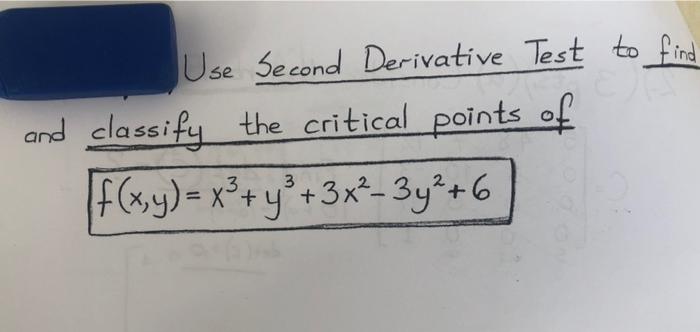 Use Second Derivative Test to find
and classify the critical points of
f(x,y) = x³ + y³ + 3x² - 3y² + 6